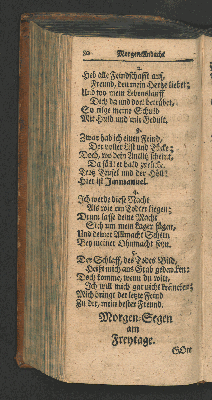 80 Morgen-Andacht
2.
Heb alle Feindschafft auf,
Freund, den mein Hertze liebet;
Und wo mein Lebenslauff
Dich da und dort betrübet,
So tilge meine Schuld
Mit Huld und mit Gedult.
3.
Zwar hab ich einen Feind,
Der voller List und Tücke;
Doch, wo dein Antlitz scheint,
Da fällt er bald zurücke.
Trotz Teufel und der Höll!
Hier ist Immanuel.
4.
Ich werde diese Nacht
Als wie ein Todter liegen;
Drum lasse deine Macht
Sich um mein Lager fügen,
Und deiner Allmacht Schein
Bey meiner Ohnmacht seyn.
5.
Der Schlaff, des Todes Bild,
Heißt mich ans Grab gedencken;
Doch komme, wenn du wilt,
Ich will mich gar nicht kräncken;
Mich bringt der letzte Feind
Zu dir, mein bester Freund.
Morgen-Segen
am
Freytage.
GOtt